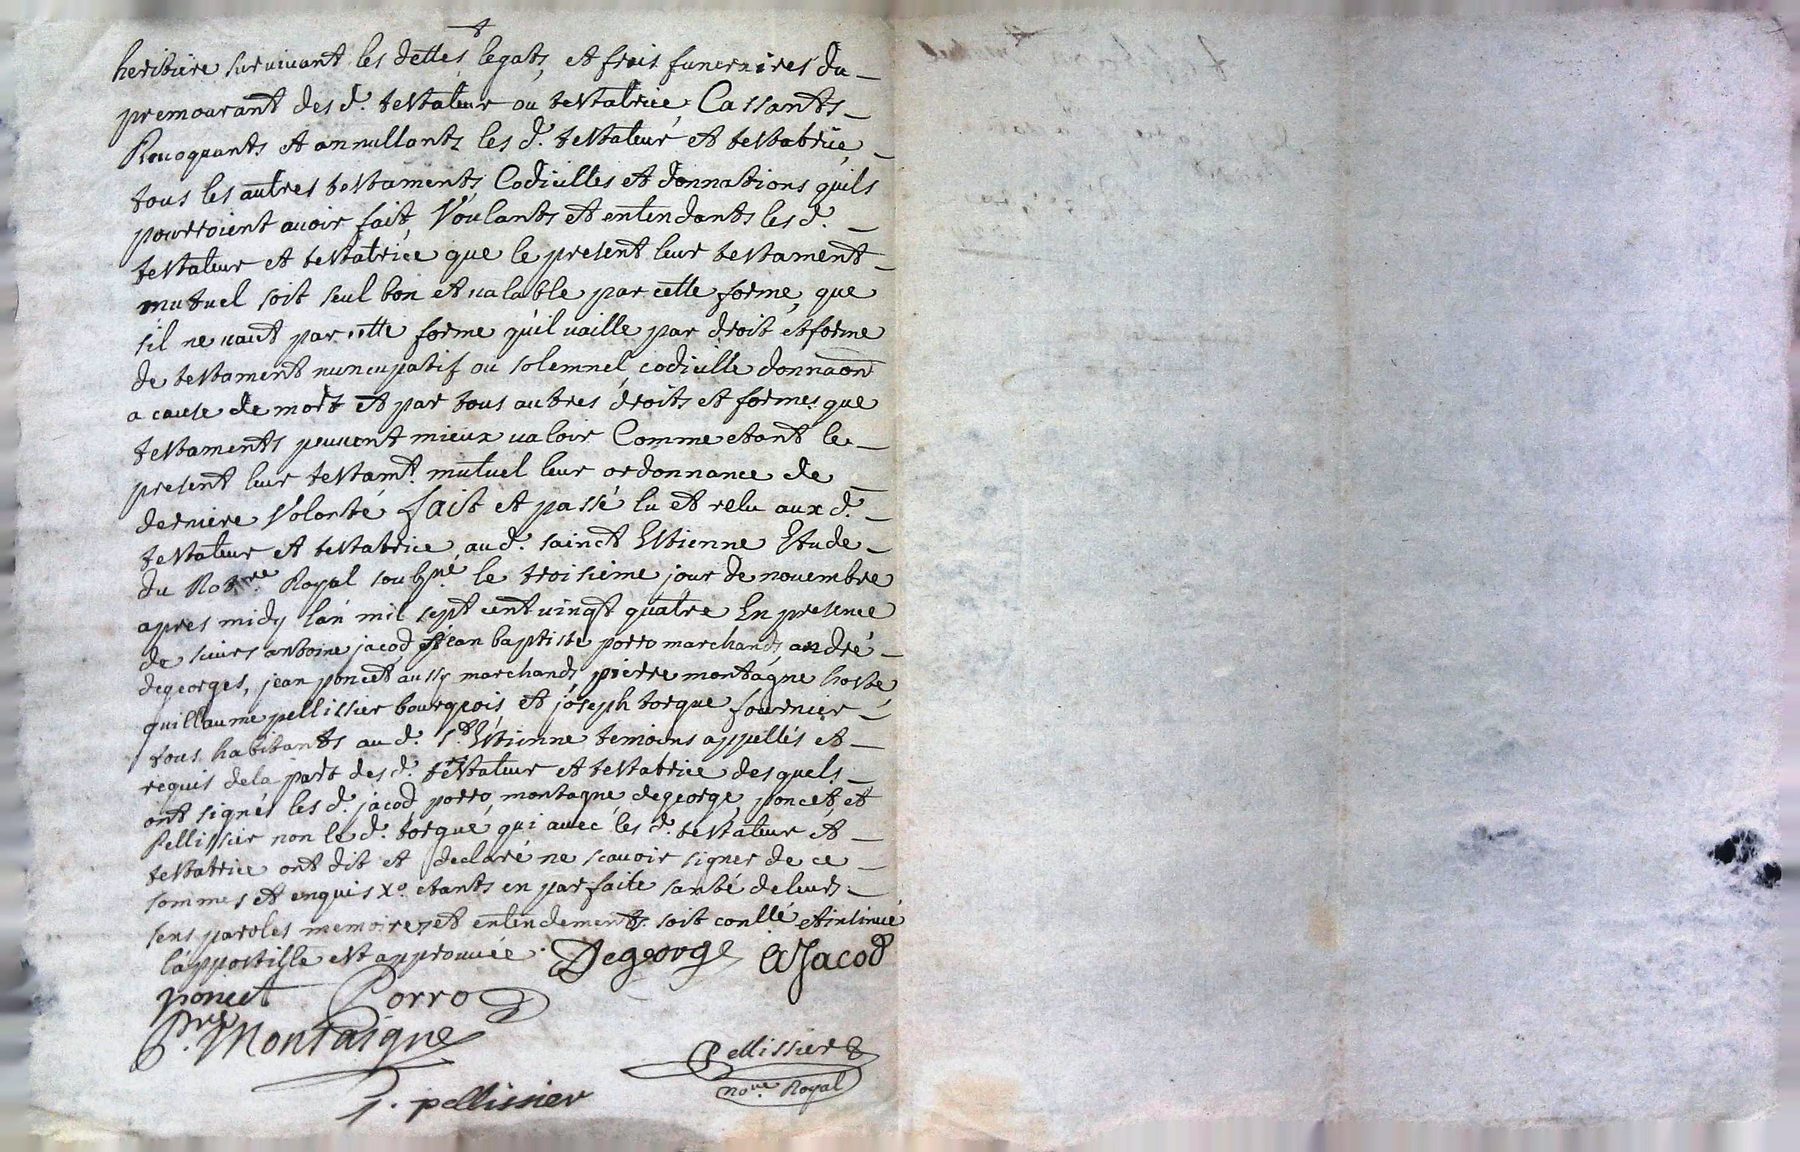 heritiere survivant les dettes legats, et frais funeraires du
premourant des d. testateur ou testatrice, Cassants
Revoquants et annullants les d. testateur et testatrice,
tous les autres testaments, Codicilles et donnations quils
pourroient avoir fait, Voulants et entendants les d.
testateur et testatrice que le present leur testament
mutuel soit seul bon et valable par cette forme, que
sil ne vaut par cette forme qu'il vaille par droit et forme
de testament nuncupatif ou solemnel, codicille donnaon
a cause de mort et par tous autres droits et formes que
testaments peuvent mieux valoir Comme etant le
present leur testamt. mutuel leur ordonnance de
derniere Volonté fait et passé lu et relu aux d.
testateur et testatrice, au d. sainct Estienne Etude
du Notre. Royal soubsné. le troisieme jour de novembre
apres midy lan mil sept cent vingt quatre En presence
de sieurs antoine jacod et jean baptiste porro marchands, andré
degeorges, jean poncet aussy marchands pierre montagne hoste
guillaume pellissier bourgeois et joseph torque fournier
tous habitants au d. St. Estienne temoins appellés et
requis de la part des d. testateur et testatrice desquels
ont signés les d. jacod porro, montagne, degeorge, poncet, et
Pellissier non le d. torque, qui avec les d. testateur et
testatrice ont dit et declaré ne scavoir signer de ce
sommes et enquis xo. etants en parfaite santé de leurs
sens paroles memoires et entendements. soit conllé et insinué
lappostille est approuvée. Degeorge A Jacod
poncet Porro
Pre. Montaigne
Pellissier
nore. Royal
J. pellissier